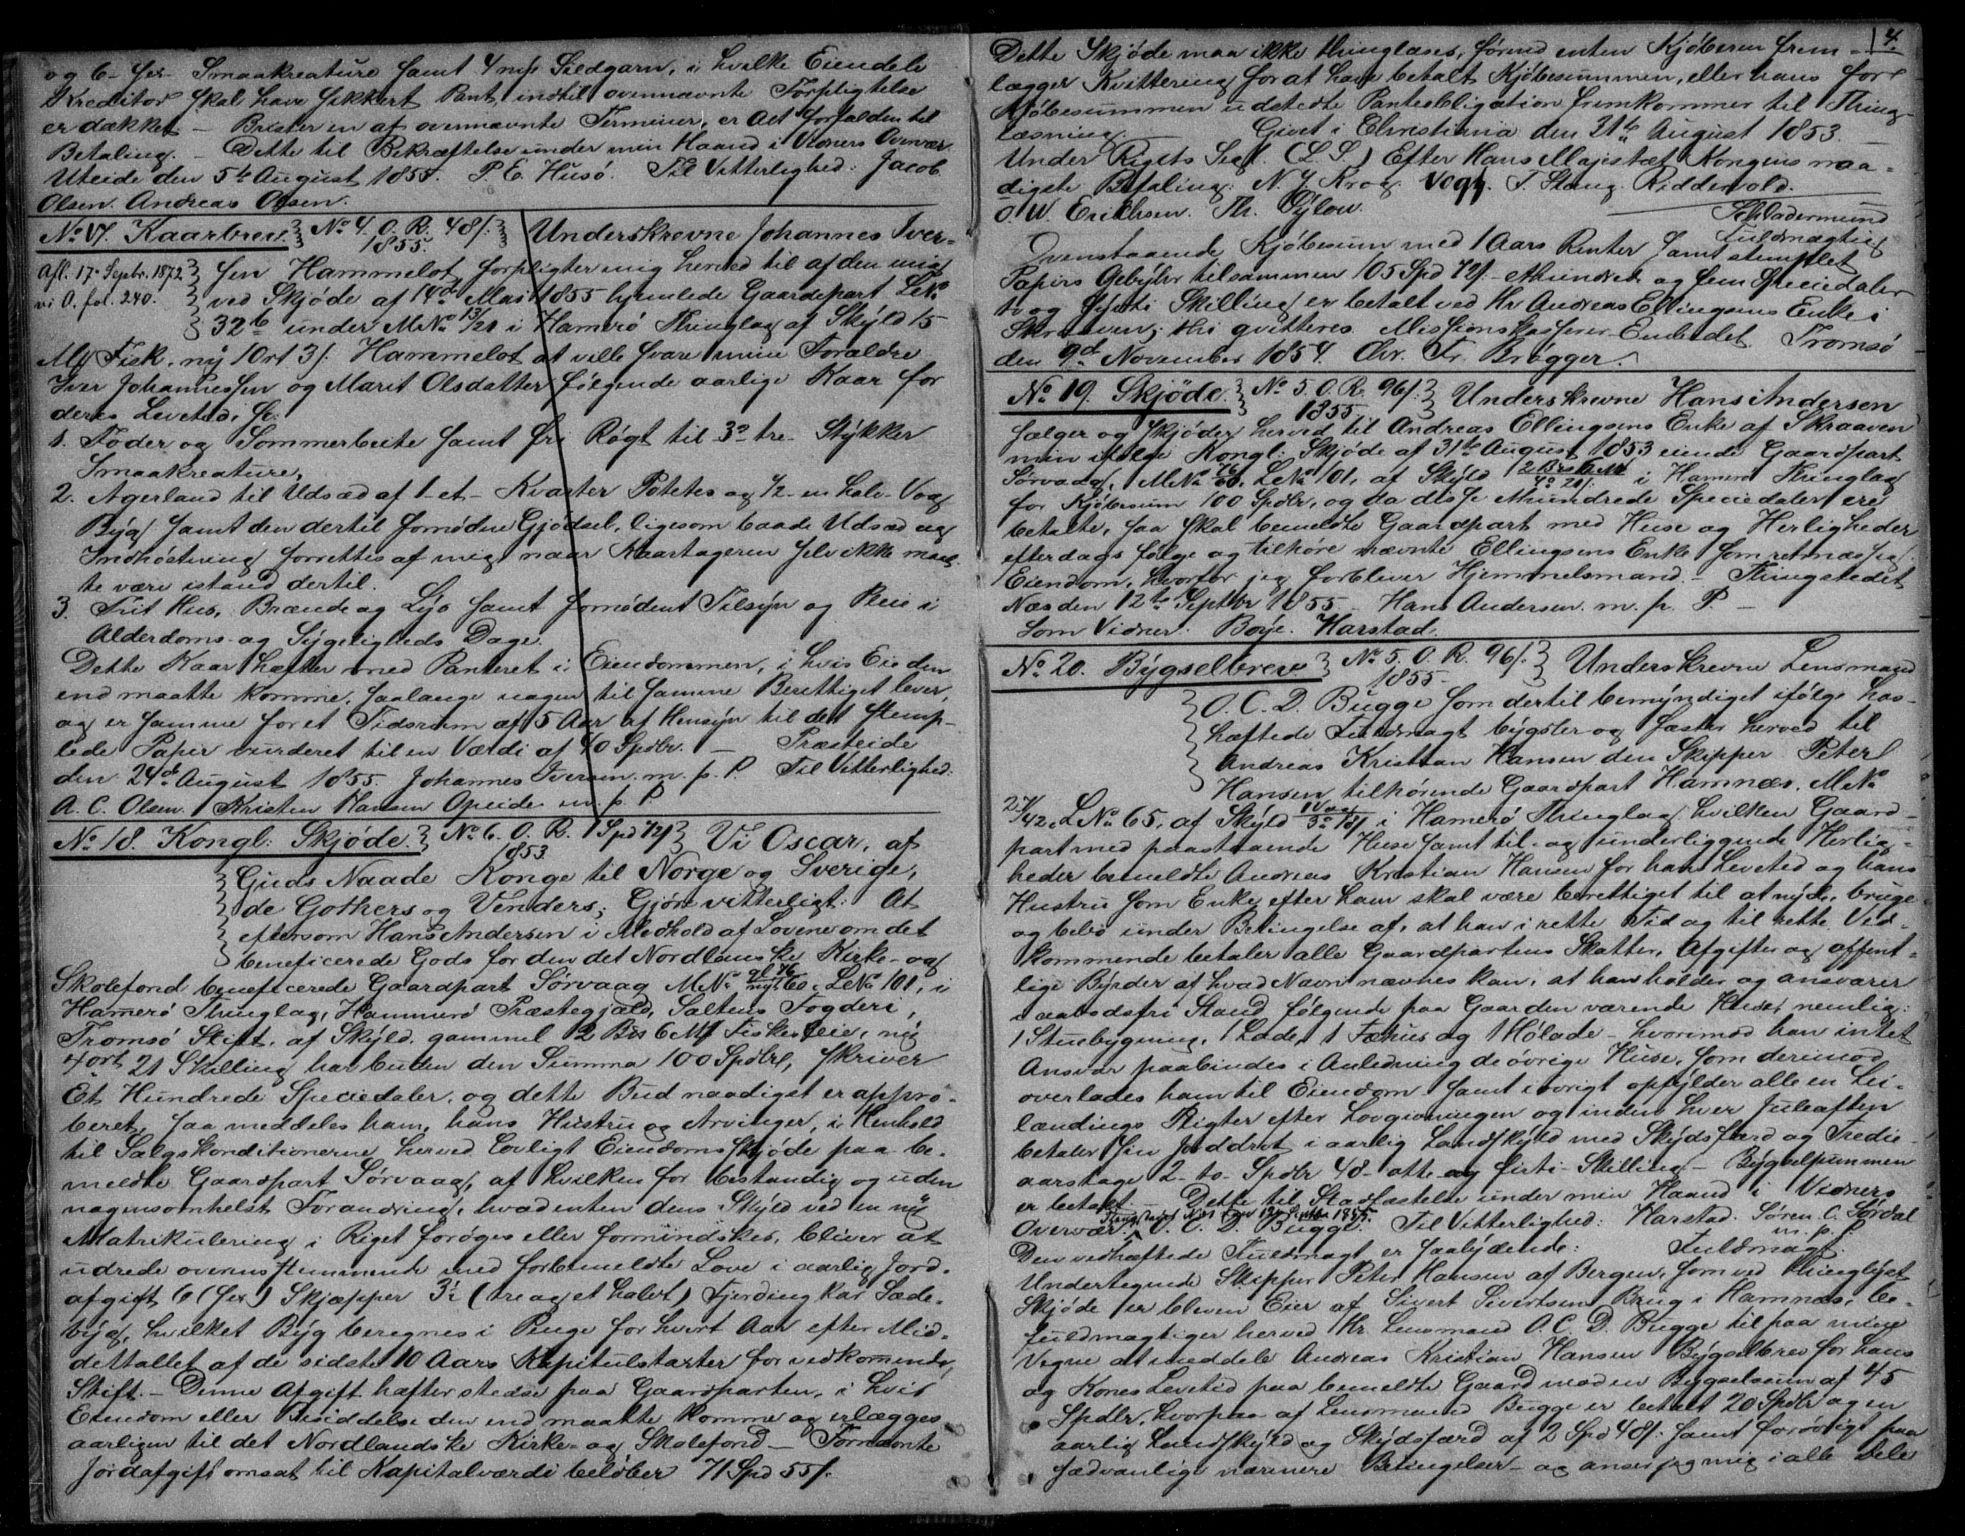 og 6- sex- Smaakreature samt 4 nye Sildgarn, i hvilke Eiendele
Kreditor skal have sikkert Pant indtil ovennævnte Forpligtelse
er dækket – Brister en af ovennævnte Terminer, er Alt forfalden til
Betaling. – Dette til Bekræftelse under min Haand i Vidners Overvær
Uteide den 5te August 1855. P. E. Husö. Til Vitterlighed: Jacob
Olsen. Andreas Olsen.
No 17. Kaarbrev. No 4. O. R. 48 s. 1855 Underskrevne Johannes Iver-
Afl. 17. Septbr. 1872 sen Hammelot forpligter mig herved til af den mig
vi O. fol. 240. ved Skjøde af 14de Mai 1855 hjemlede Gaardepart LNo
32 b under MNo 13/21 i Hamerö Thinglag af Skyld 15
Mk Fisk, ny 1 Ort 3 s. Hammelot at ville svare mine Foraldre
Iver Johannessen og Marit Olsdatter følgende aarlige Kaar for
deres Levetid, s:
1. Foder og Sommerbeite samt fri Røgt til 3- tre- Stykker
Smaakreature.
2. Agerland til Udsæd af 1- et- Kvarter Potetes og 1/2- en halv- Vog
Byg samt den dertil fornødne Gjødsel, ligesom baade Udsæd og
Indhøstning forrettes af mig naar Kaartageren selv ikke maat-
te være istand dertil.
3. Frit Hus, Brænde og Lys samt fornødent Tilsyn og Pleie i
Alderdoms- og Sygeligheds Dage.
Dette Kaar hæfter med Panteret i Eiendommen, i hvis Eie den
end maatte komme, saalænge nogen til samme Berettiget lever,
og er samme for et Tidsrum af 5 Aar af Hensyn til det stemp-
lede Papir vurderet til en Værdi af 40 Spdlr. – Præsteide
den 24de August 1855. Johannes Iversen. m. p. P. Til Vitterlighed:
A. C. Olsen. Kristen Hansen Opeide m. p. P
No 18. Kongl: Skjøde. No 6. O. R. 1 Spd 72 s 1853. Vi Oscar, af
Guds Naade Konge til Norge og Sverige,
de Gothers og Venders; Gjøre vitterligt: At
eftersom Hans Andersen i Medhold af Lovene om det
beneficerede Gods har den det Nordlandske Kirke- og
Skolefond beneficerede Gaardpart Sørvaag MNo gl 76 nyt 60, LNo 101, i
Hamerö Thinglag, Hammerö Præstegjæld, Saltens Fogderi,
Tromsö Stift, af Skyld, gammel 2 Bis 6 Mk Fiskesleie, ny
4 ort 21 Skilling har buden den Summa 100 Spdlr, skriver
Et Hundrede Speciedaler, og dette Bud naadigst er appro-
beret, saa meddeles ham, hans Hustru og Arvinger, i Henhold
til Salgskonditionerne herved Lovligt Eiendoms Skjøde paa be-
meldte Gaardpart Sørvaag, af hvilken for bestandig og uden
nogensomhelst Forandring, hvad enten dens Skyld ved en ny
Matrikulering i Riget forøges eller formindskes, bliver at
udrede overensstemmende med forbemeldte Love i aarlig Jord-
afgift 6 (sex) Skjæpper 3½ (tre og et halvt) Fjerdingkar Sæde-
byg, hvilket Byg beregnes i Penge for hvert Aar efter Mid-
deltallet af de sidste 10 Aars Kapitulstaxter for vedkommende
Stift. – Denne Afgift hæfter stedse paa Gaardparten, i hvis
Eiendom eller Besiddelse den end maatte komme og erlægges
aarligen til det Nordlandske Kirke- og Skolefond – Fornævnte
Jordafgift omsat til Kapitalværdi beløber 71 Spd 55 s.
4.
Dette Skjøde maa ikke thinglæses, førend enten Kjøberen frem-
lægger Kvittering for at have betalt Kjøbesummen, eller hans for
Kjøbesummen udstedte Panteobligation fremkommer til Thing-
læsning. Givet i Christiania den 31te August 1853
Under Rigets Segl. (L. S.) Efter Hans Majestæt Kongens naa-
digste Befaling: N. J. Krog. Vogt. F. Stang. Riddervold.
O. W. Erichsen. Th. Bylow.
Schladermund
Fuldmægtig
Ovenstaaende Kjøbesum med 1 Aars Renter samt stemplet
Papirs Gebyhr tilsammen 105 Spd 72 s – Ethundrede og fem Speciedaler
to og syvti Skilling er betalt ved Hr Andreas Ellingsens Enke i
Skraaven; thi qvitteres. Missionskasserer-Embedet Tromsö
den 9de November 1854. Chr. Fr. Brøgger.
No 19. Skjöde. No 5. O. R. 96 s. 1855. Underskrevne Hans Andersen
sælger og skjøder herved til Andreas Ellingsens Enke af Skraaven
min ifølge Kongl: Skjøde af 31te August 1853 eiende Gaardpart
Sørvaag, MNo 76/60, LNo 101, af Skyld 2 Bis 6 Mk 4 o 21 s i Hamerö Thinglag
for Kjøbesum 100 Spdlr, og da disse Ethundrede Speciedaler ere
betalte, saa skal bemeldte Gaardpart med Huse og Herligheder
efterdags følge og tilhøre nævnte Ellingsens Enke som retmæssig
Eiendom, hvorfor jeg forbliver Hjemmelsmand. – Thingstedet
Næs den 12te Septbr 1855 – Hans Andersen. m. p. P. –
Som Vidner: Boye. Harstad.
No 20. Bygselbrev No 5. O. R. 96 s. 1855 Underskrevne Lensmand
O. C. D. Bugge som dertil bemyndiget ifølge hos-
hæftede Fuldmagt bygsler og fæster herved til
Andreas Kristian Hansen den Skipper Peter
Hansen tilhørende Gaardpart Hamnæs, MNo
27/42, LNo 65, af Skyld 1 Vog 3 o 18 s i Hamerö Thinglag hvilken Gaard-
part med paastaaende Huse samt til- og underliggende Herlig-
heder bemeldte Andreas Kristian Hansen for hans Levetid og hans
Hustru som Enke efter ham skal være berettiget til at nyde, bruge
og bebo under Betingelse af, at han i rette Tid og til rette Ved-
kommende betaler alle Gaardpartens Skatter, Afgifter og offent-
lige Byrder af hvad Navn nævnes kan, at han holder og ansvarer
i aabodsfri Stand følgende paa Gaarden værende Huse, nemlig:
1 Stuebygning, 1 Lade, 1 Fæhus og 1 Hølade – hvorimod han intet
Ansvar paabindes i Anledning de øvrige Huse, som derimod
overlades ham til Eiendom samt iøvrigt opfylder alle en Lei-
lændings Pligter efter Lovgivningen og inden hver Juleaften
betaler sin Joddrot i aarlig Landskyld med Skydsfærd og Tredie-
aarstage 2- to- Spdlr 48- otte og firti- Skilling – Bygselsummen
er betalt – Dette til Stadfæstelse under min Haand i Vidners
Overvær. Thingstedet Næs den 12te Septbr 1855. O. C. D. Bugge. Til Vitterlighed: Harstad. Søren C. Sørdal
m. p. P.
Den vedhæftede Fuldmagt er saalydende: Fuldmagt:
Undertegnede Skipper Peter Hansen af Bergen, som ved thinglyst
Skjøde er bleven Eier af Sivert Sivertsens Brug i Hamnæs, be-
fuldmægtiger herved Hr. Lensmand O. C. D. Bugge til paa mine
Vegne at meddele Andreas Kristian Hansen Bygselbrev for hans
og Kones Levetid paa bemeldte Gaard mod en Bygselsum af 45
Spdlr, hvorpaa af Lensmand Bugge er betalt 20 Spdlr og en
aarlig Landskyld og Skydsfærd af 2 Spd 48 s. samt forøvrigt paa
sædvanlige nærmere Betingelser – og anser jeg mig i alle Dele